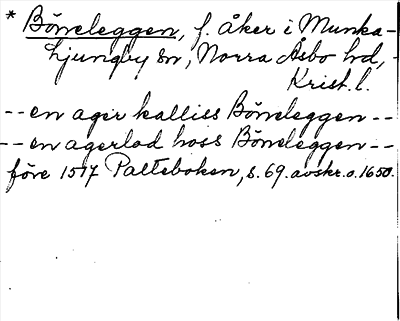 * Böneleggen, f. åker i Munka-
Ljungby sn, Norra Åsbo hd,
Krist. l.
-- en ager kalliss Böneleggen --
-- en agerlod hoss Böneleggen --
före 1517 Palteboken, s. 69. avskr. o. 1650.